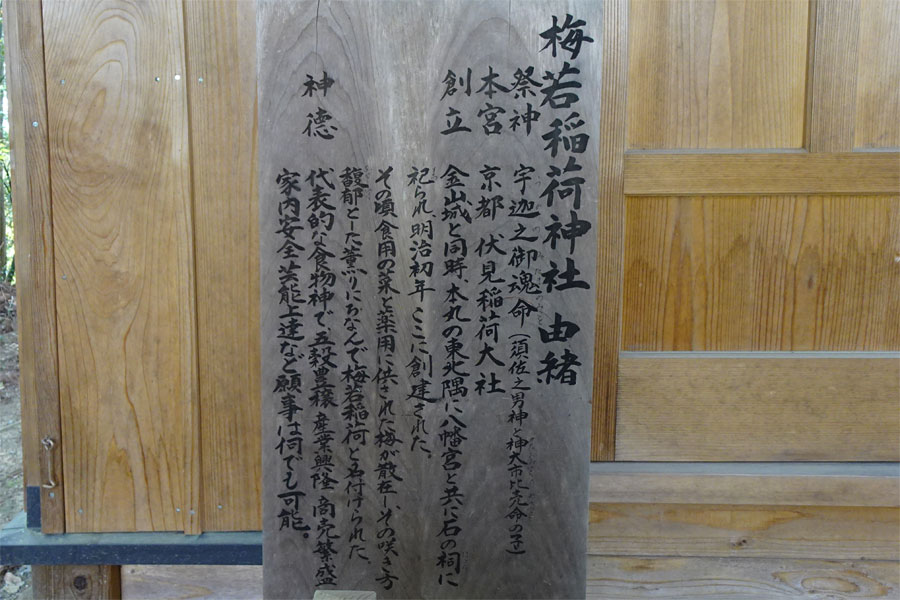 梅若稲荷神社 由緒
祭神 宇迦之御魂命(須佐之男神と神大市比売命の子)
本宮 京都 伏見稲荷大社
創立 金山城と同時、本丸の東北隅に八幡宮と共に石の祠に
祀られ、明治初年ここに創建された。
その頃食用の菜と薬用に供された梅が散在し、その咲き方
馥郁とした薫りにちなんで梅若稲荷と名付けられた、
神徳 代表的な食物神で、五穀豊穣 産業興隆 商売繁盛
家内安全 芸能上達など願事は何でも可能。